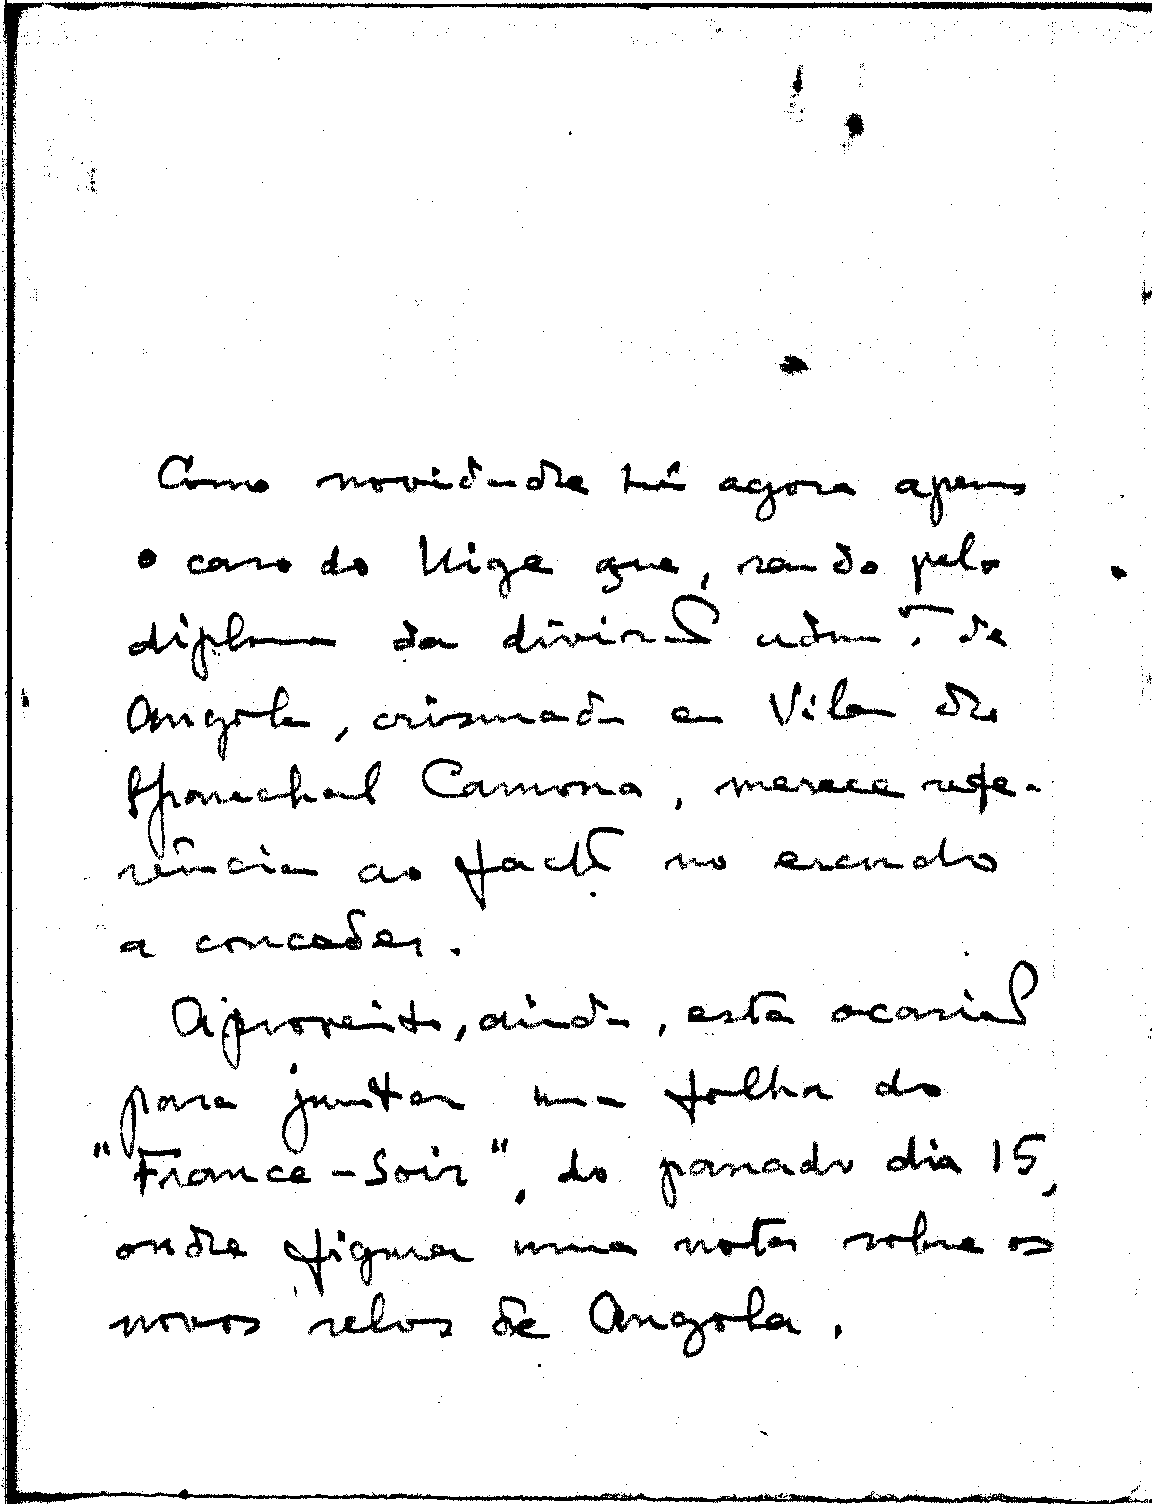 Como novidade há agora apenas
o caso do Uige que, sendo pelo
diploma da divisão adm.T. de
Angola, crismada em Vila de
Marechal Carmona, merece refe-
rência ao facto no escudo
a conceder.
Aproveito, ainda, esta ocasião
para juntar uma folha do
"France-Soir", do passado dia 15,
onde figura uma nota sobre os
novos selos de Angola.